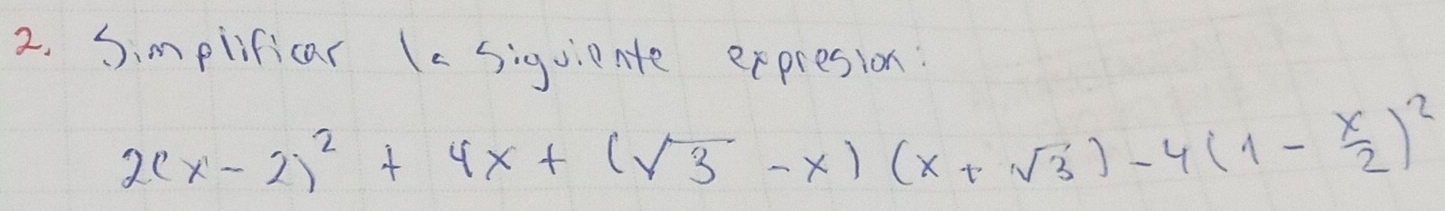 2. Simplificar la siguiente expresion:
2(x-2)² + 4x + (√3 -x) (x + √3) - 4(1 - x/2)²